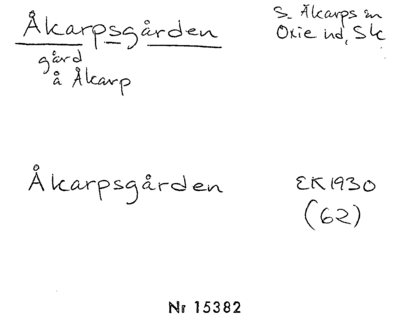 Åkarpsgården
S. Åkarps sn
Oxie hd, Sk
gård
å Åkarp
Åkarpsgården
EK 1930
(62)
Nr 15382